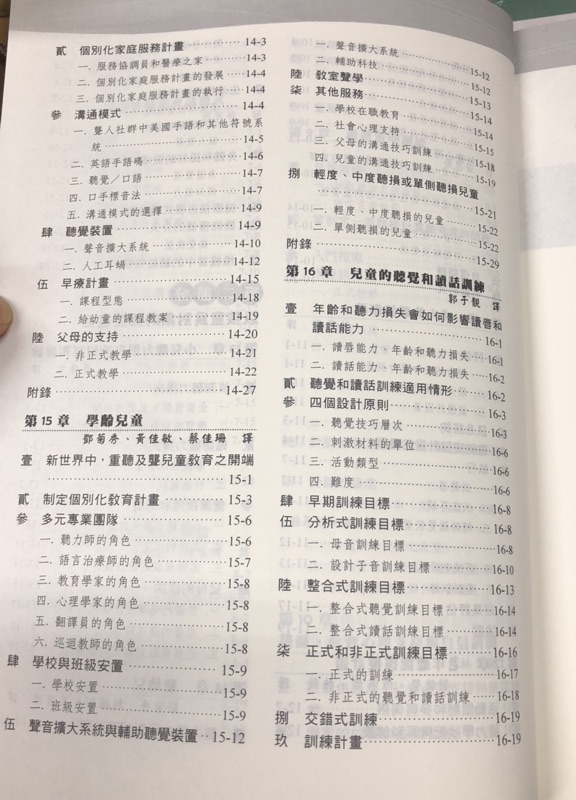 貳 個別化家庭服務計畫 ………… 14-3
一. 服務協調員和醫療之家 ………… 14-3
二. 個別化家庭服務計畫的發展 … 14-4
三. 個別化家庭服務計畫的執行 … 14-4
參 溝通模式 ………… 14-4
一. 聾人社群中美國手語和其他符號系
統 ………… 14-5
二. 英語手語嗎 ………… 14-6
三. 聽覺／口語 ………… 14-7
四. 口手標音法 ………… 14-7
五. 溝通模式的選擇 ………… 14-9
肆 聽覺裝置 ………… 14-9
一. 聲音擴大系統 ………… 14-10
二. 人工耳蝸 ………… 14-12
伍 早療計畫 ………… 14-15
一. 課程型態 ………… 14-18
二. 給幼童的課程教案 ………… 14-19
陸 父母的支持 ………… 14-20
一. 非正式教學 ………… 14-21
二. 正式教學 ………… 14-22
附錄 ………… 14-27
第 15 章 學齡兒童
鄧菊秀、黃佳敏、蔡佳珊 譯
壹 新世界中，重聽及聾兒童教育之開端
………… 15-1
貳 制定個別化教育計畫 ………… 15-3
參 多元專業團隊 ………… 15-6
一. 聽力師的角色 ………… 15-6
二. 語言治療師的角色 ………… 15-7
三. 教育學家的角色 ………… 15-8
四. 心理學家的角色 ………… 15-8
五. 翻譯員的角色 ………… 15-8
六. 巡迴教師的角色 ………… 15-8
肆 學校與班級安置 ………… 15-9
一. 學校安置 ………… 15-9
二. 班級安置 ………… 15-9
伍 聲音擴大系統與輔助聽覺裝置 ·· 15-12
一. 聲音擴大系統 ………… 15-12
二. 輔助科技 ………… 15-12
陸 教室聲學 ………… 15-13
柒 其他服務 ………… 15-14
一. 學校在職教育 ………… 15-14
二. 社會心理支持 ………… 15-14
三. 父母的溝通技巧訓練 ………… 15-18
四. 兒童的溝通技巧訓練 ………… 15-19
捌 輕度、中度聽損或單側聽損兒童
………… 15-21
一. 輕度、中度聽損的兒童 ………… 15-22
二. 單側聽損的兒童 ………… 15-22
附錄 ………… 15-29
第 16 章 兒童的聽覺和讀話訓練
郭于靚 譯
壹 年齡和聽力損失會如何影響讀唇和
讀話能力 ………… 16-1
一. 讀唇能力，年齡和聽力損失 … 16-1
二. 讀話能力，年齡和聽力損失 … 16-2
貳 聽覺和讀話訓練適用情形 ………… 16-2
參 四個設計原則 ………… 16-3
一. 聽覺技巧層次 ………… 16-3
二. 刺激材料的單位 ………… 16-6
三. 活動類型 ………… 16-6
四. 難度 ………… 16-6
肆 早期訓練目標 ………… 16-8
伍 分析式訓練目標 ………… 16-8
一. 母音訓練目標 ………… 16-8
二. 設計子音訓練目標 ………… 16-10
陸 整合式訓練目標 ………… 16-13
一. 整合式聽覺訓練目標 ………… 16-14
二. 整合式讀話訓練目標 ………… 16-14
柒 正式和非正式訓練目標 ………… 16-16
一. 正式的訓練 ………… 16-17
二. 非正式的聽覺和讀話訓練 ………… 16-18
捌 交錯式訓練 ………… 16-19
玖 訓練計畫 ………… 16-19